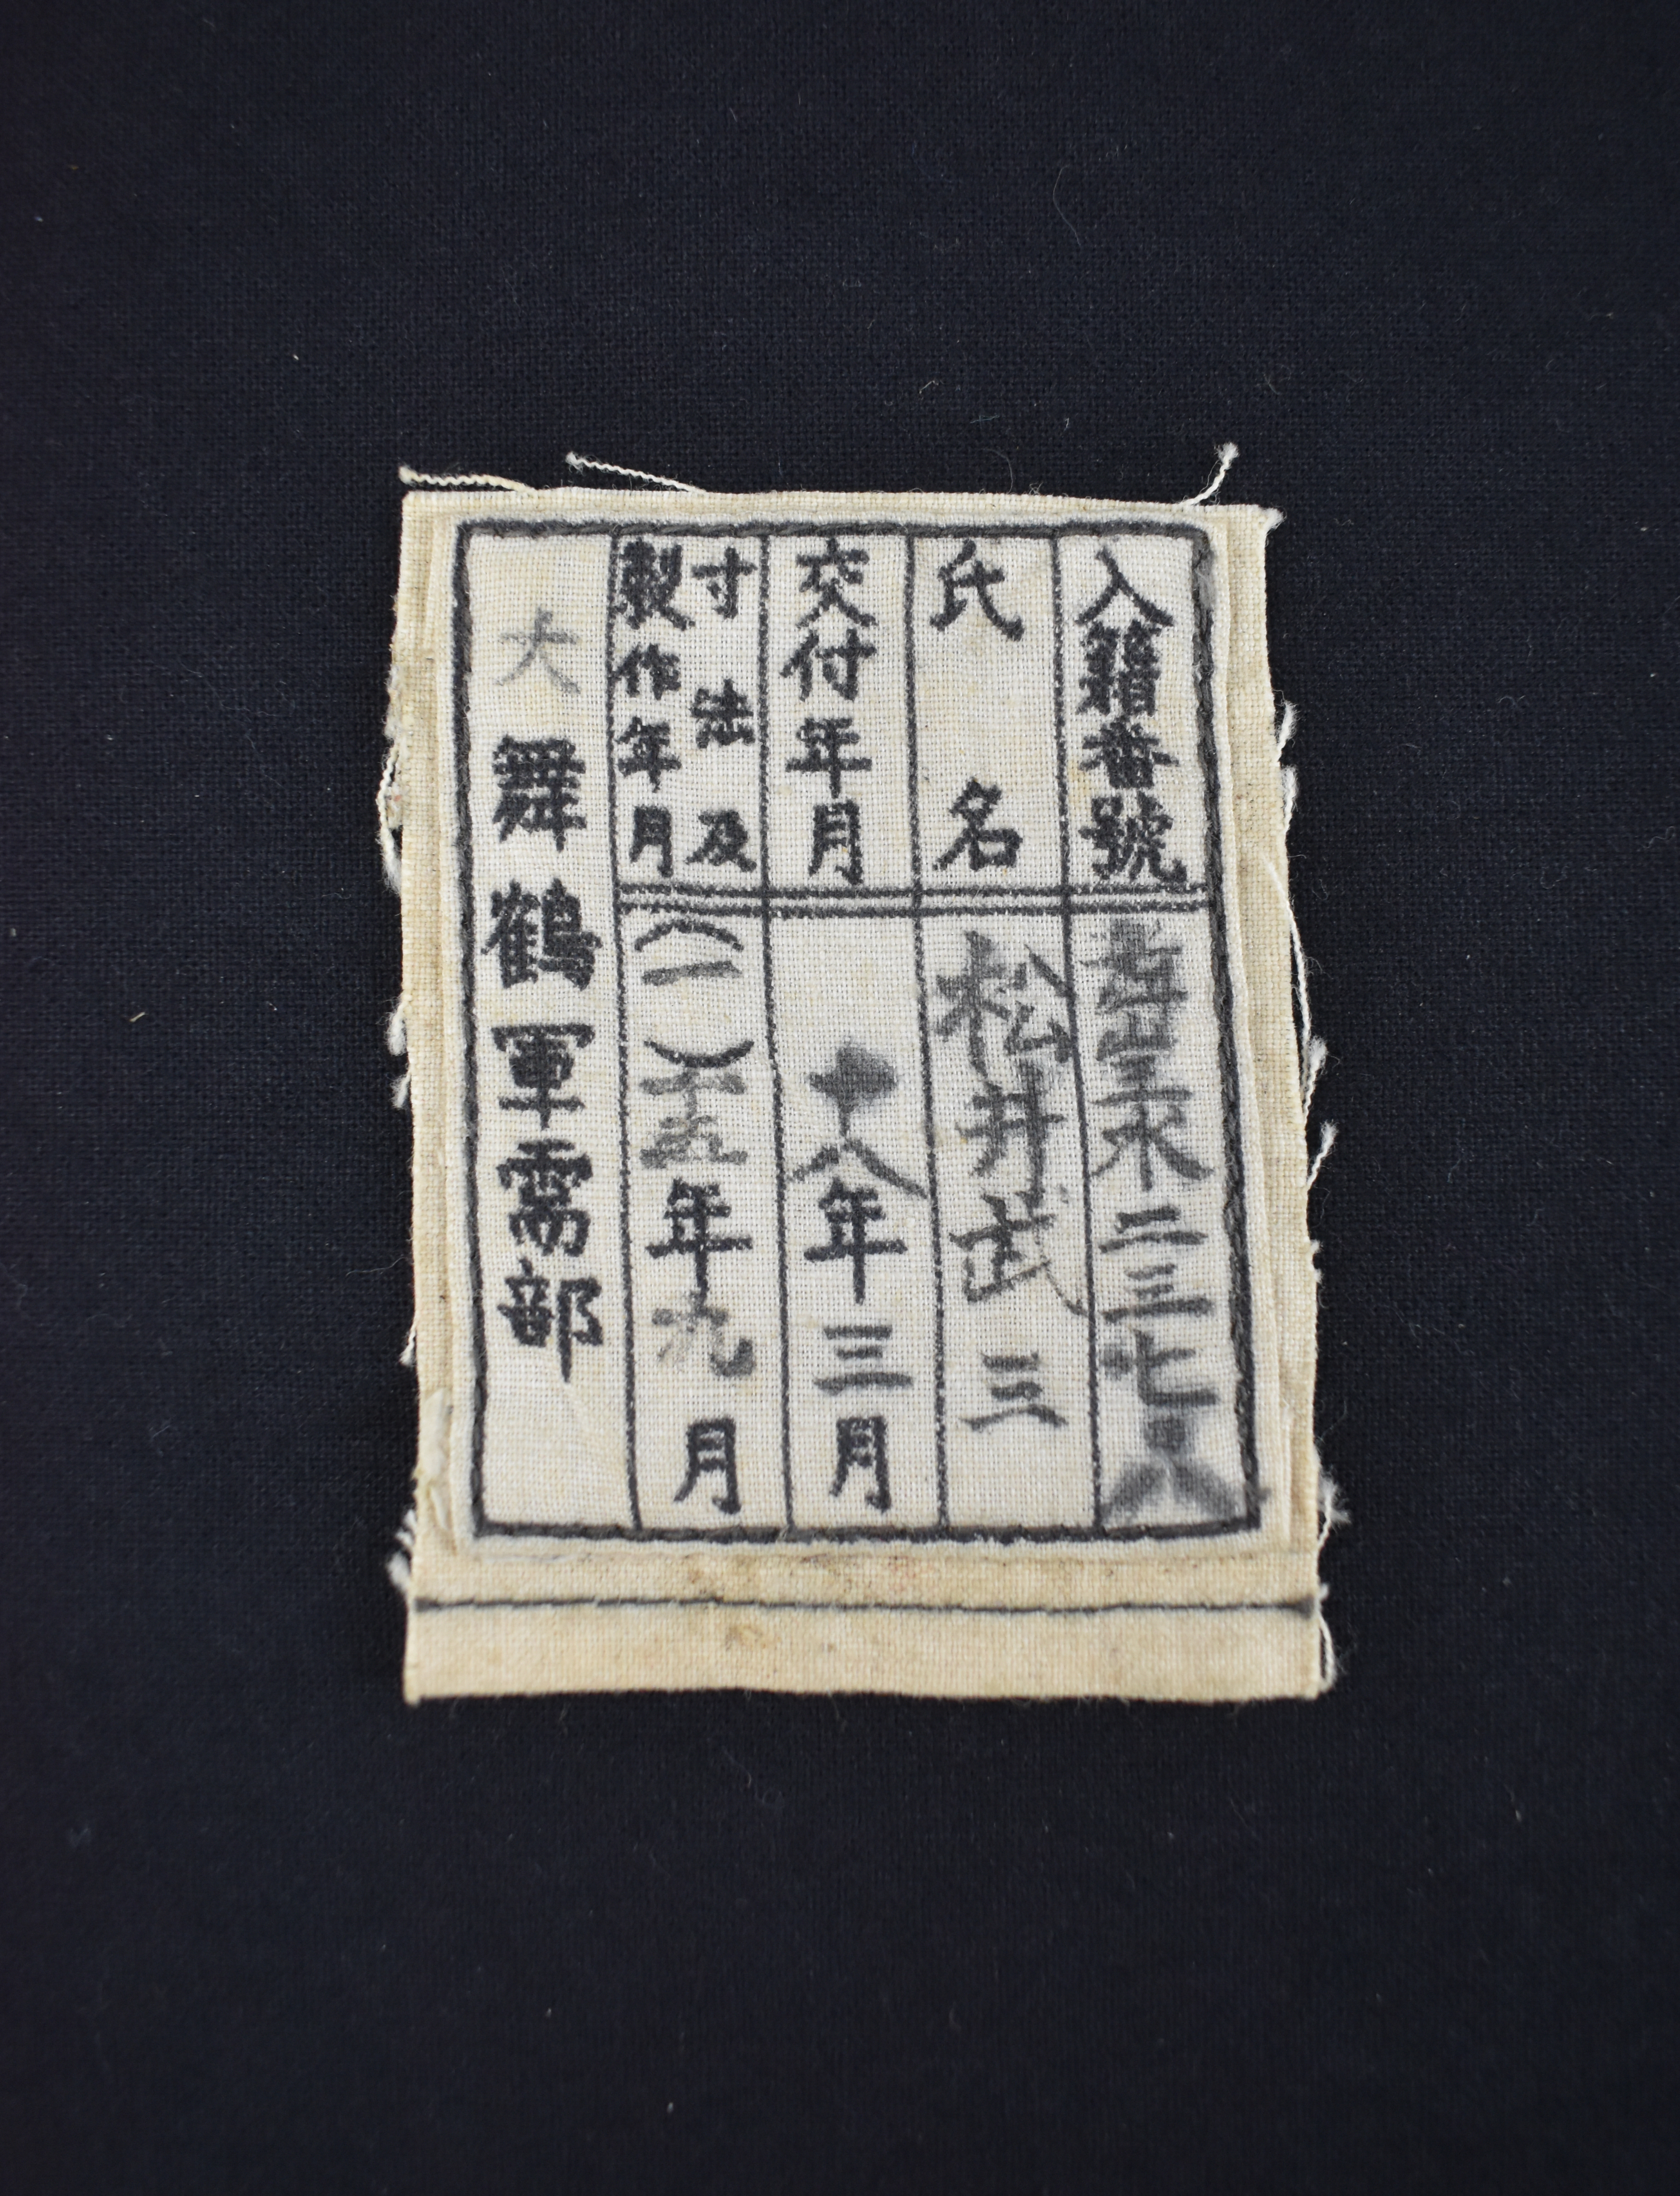 入籍番號
水二三七〇八
氏名
松井武三
交付年月
十八年三月
寸法及
製作年月
(一)十五年九月
大
舞鶴軍需部